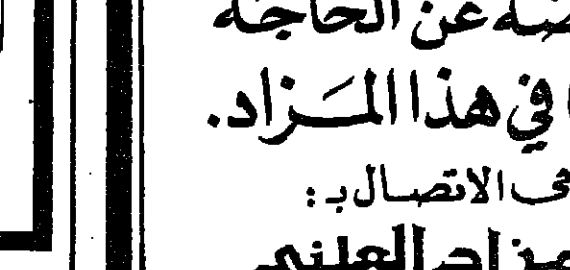 عن الحاجة
في هذا المَزاد.
الاتصال بـ :
العلني